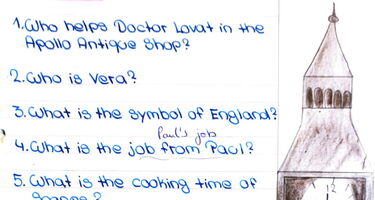 1. Who helps Doctor Lovat in the
Apollo Antique Shop?
2. Who is Vera?
3. What is the symbol of England?
Paul's job
4. What is the job from Paul?
5. What is the cooking time of
12